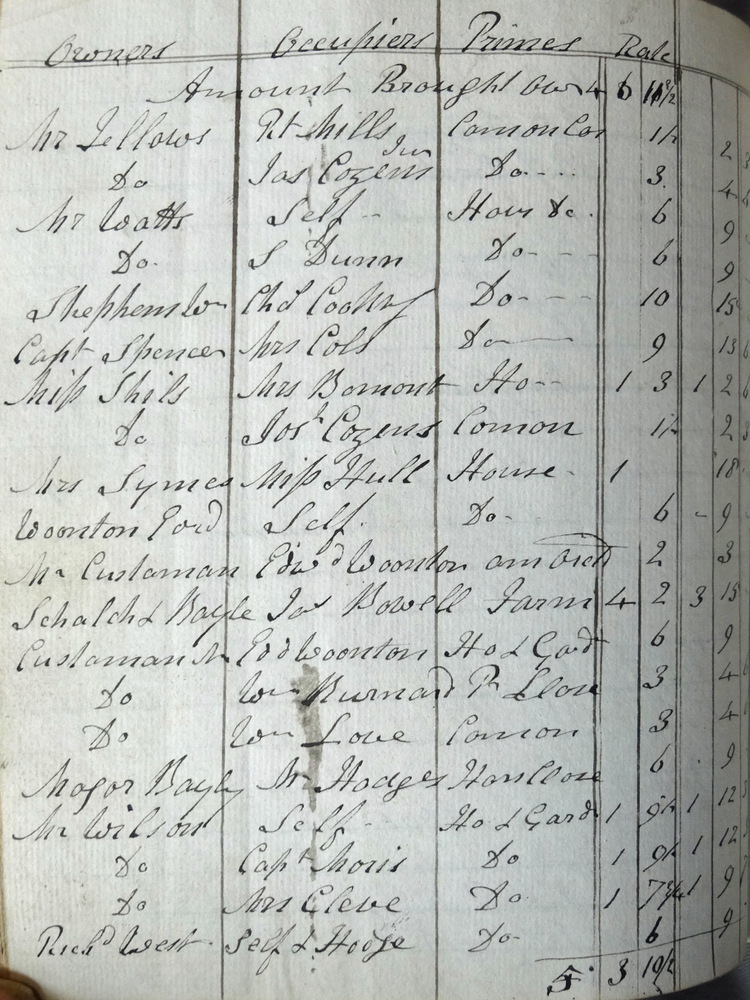 Owners Occupiers Primes Rate
Amount Brought Over 4 6
Mr Jellows Rt Mills Comon 1½ 2
Do Jas Cozens Jun Do 3 4
Mr Watts Self Hous &c. 6 9
Do S Dunn Do 6 9
Shephem Wm Chd Do 10 15
Capt Spencer Mrs Cols Do 9 13
Miss Shils Mrs Bomont Ho 1 3 1 2
Do Josh Cozens Comon 1½ 2
Mrs Symes Miss Hull House 1 18
Woonton Edrd Self Do 6 9
Mr Custaman Edwd Woonton 2 3
Schalch & Bayle Jas Bowell Farm 4 2 3 15
Custaman Mr Ed Woonton Ho & Gard 6 9
Do Wm Burnard Pr Close 3 4
Do Wm Love Comon 3 4
Major Bayly Mr Hodges Hous Close 6 9
Mr Wilson Self Ho & Gard 1 9½ 1 12
Do Capt Moris Do 1 9½ 1 12
Do Mrs Cleve Do 1 7¾ 1 9
Richd West Self & Hodge Do 6 9
5 3 10½